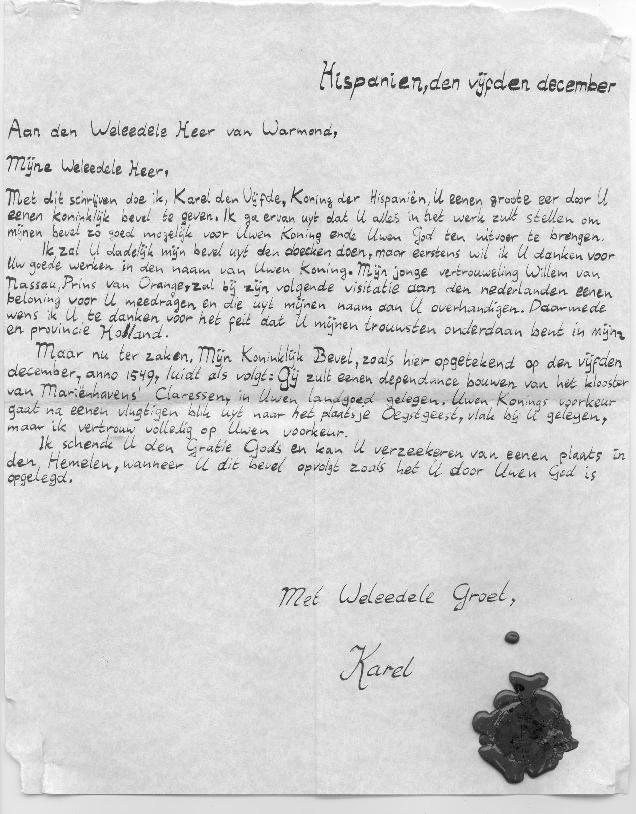 Hispaniën, den vijfden december
Aan den Weleedele Heer van Warmond,
Mijne Weleedele Heer,
Met dit schrijven doe ik, Karel den Vijfde, Koning der Hispaniën, U eenen groote eer door U
eenen koninklijk bevel te geven. Ik ga ervan uyt dat U alles in het werk zult stellen om
mijnen bevel zo goed mogelijk voor Uwen Koning ende Uwen God ten uitvoer te brengen.
Ik zal U dadelijk mijn bevel uyt den doecken doen, maar eerstens wil ik U danken voor
Uw goede werken in den naam van Uwen Koning. Mijn jonge vertrouweling Willem van
Nassau, Prins van Orange, zal bij zijn volgende visitatie aan den nederlanden eenen
beloning voor U meedragen en die uyt mijnen naam aan U overhandigen. Daarmede
wens ik U te danken voor het feit dat U mijnen trouwsten onderdaan bent in mijne
en provincie Holland.
Maar nu ter zaken, Mijn Koninklijk Bevel, zoals hier opgetekend op den vijfden
december, anno 1549, luidt als volgt: Gij zult eenen dependance bouwen van het klooster
van Mariënhavens Claressen, in Uwen landgoed gelegen. Uwen Konings voorkeur
gaat na eenen vlugtigen blik uyt naar het plaatsje Oegstgeest, vlak bij U gelegen,
maar ik vertrouw volledig op Uwen voorkeur.
Ik schenck U den Gratie Gods en kan U verzeekeren van eenen plaats in
den Hemelen, wanneer U dit bevel opvolgt zoals het U door Uwen God is
opgelegd.
Met Weleedele Groet,
Karel